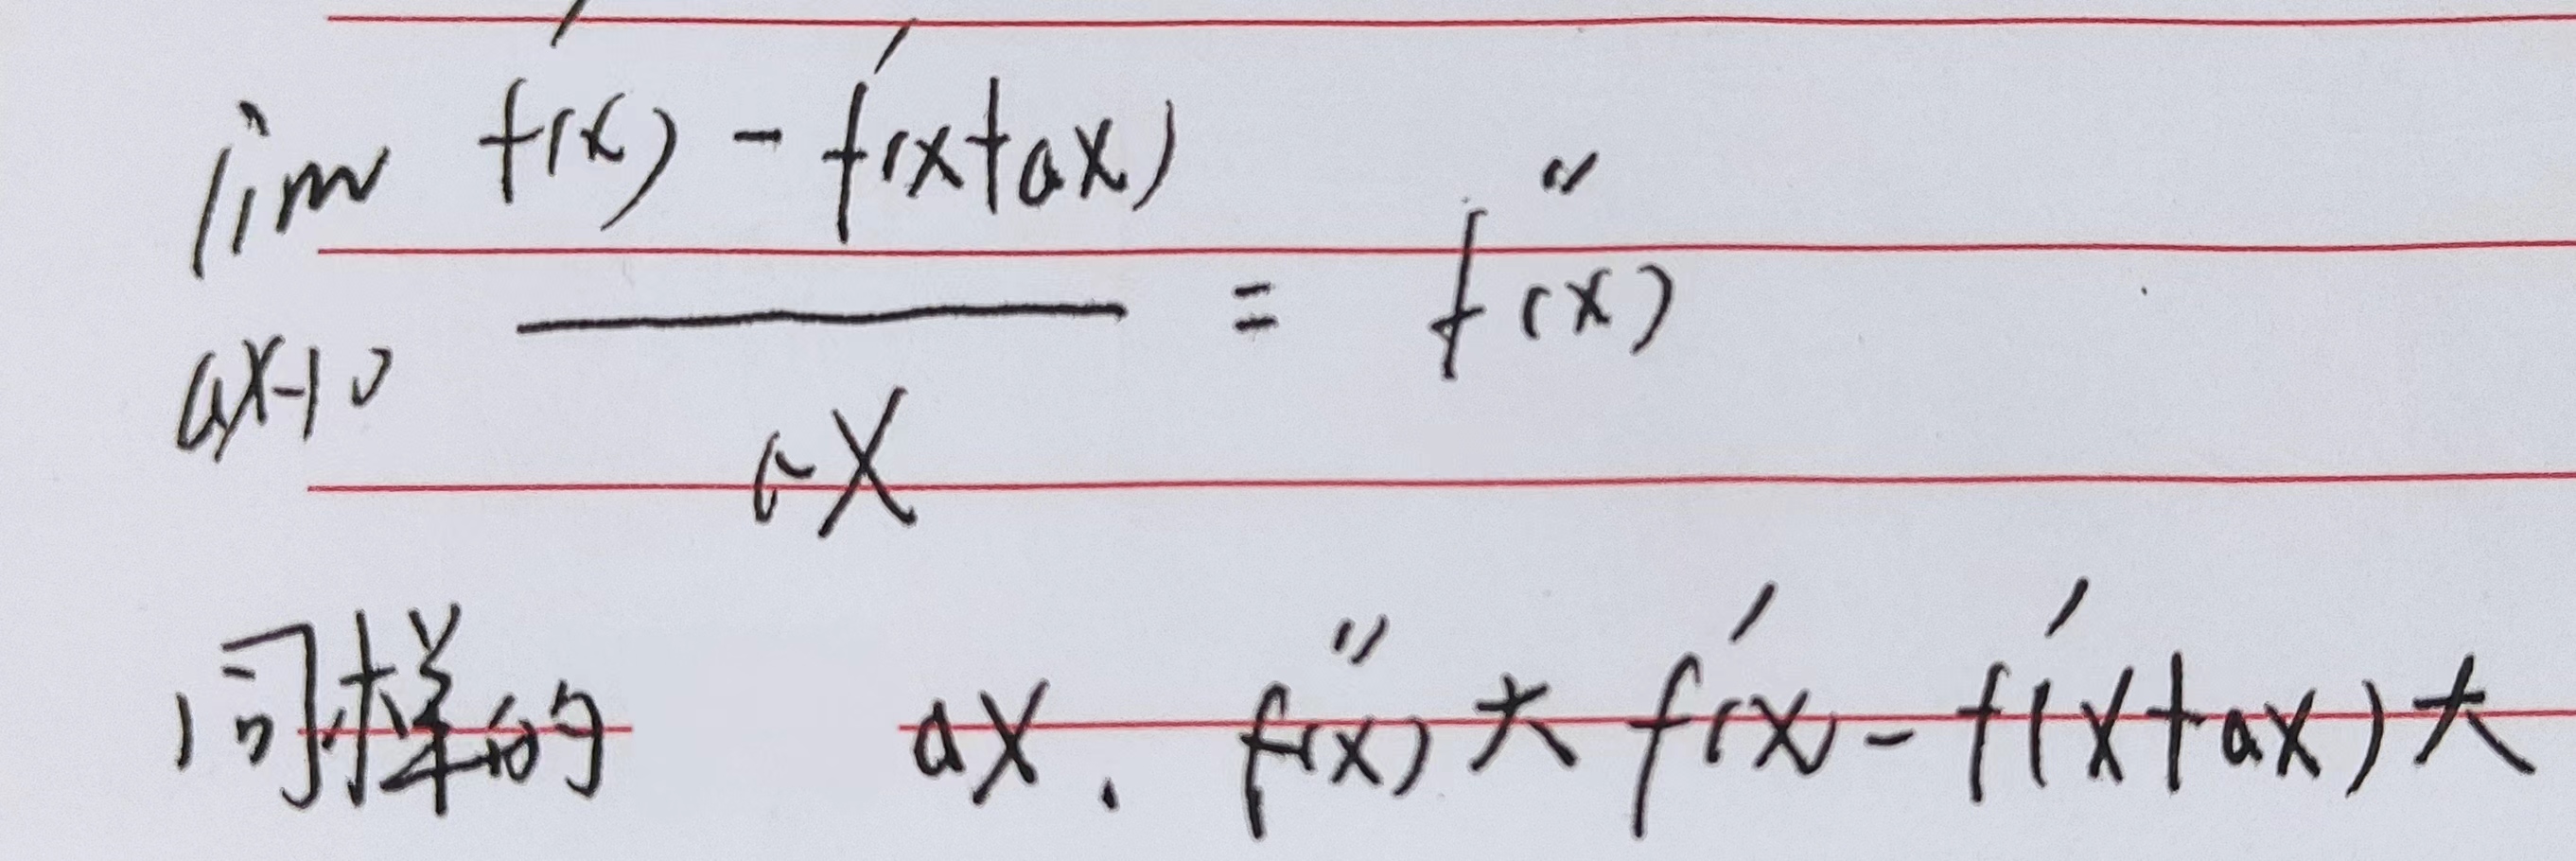 lim f′(x) - f′(x+ax)
ax→0 ――― = f″(x)
ax
同样的 ax. f″(x)大 f′(x) - f′(x+ax)大